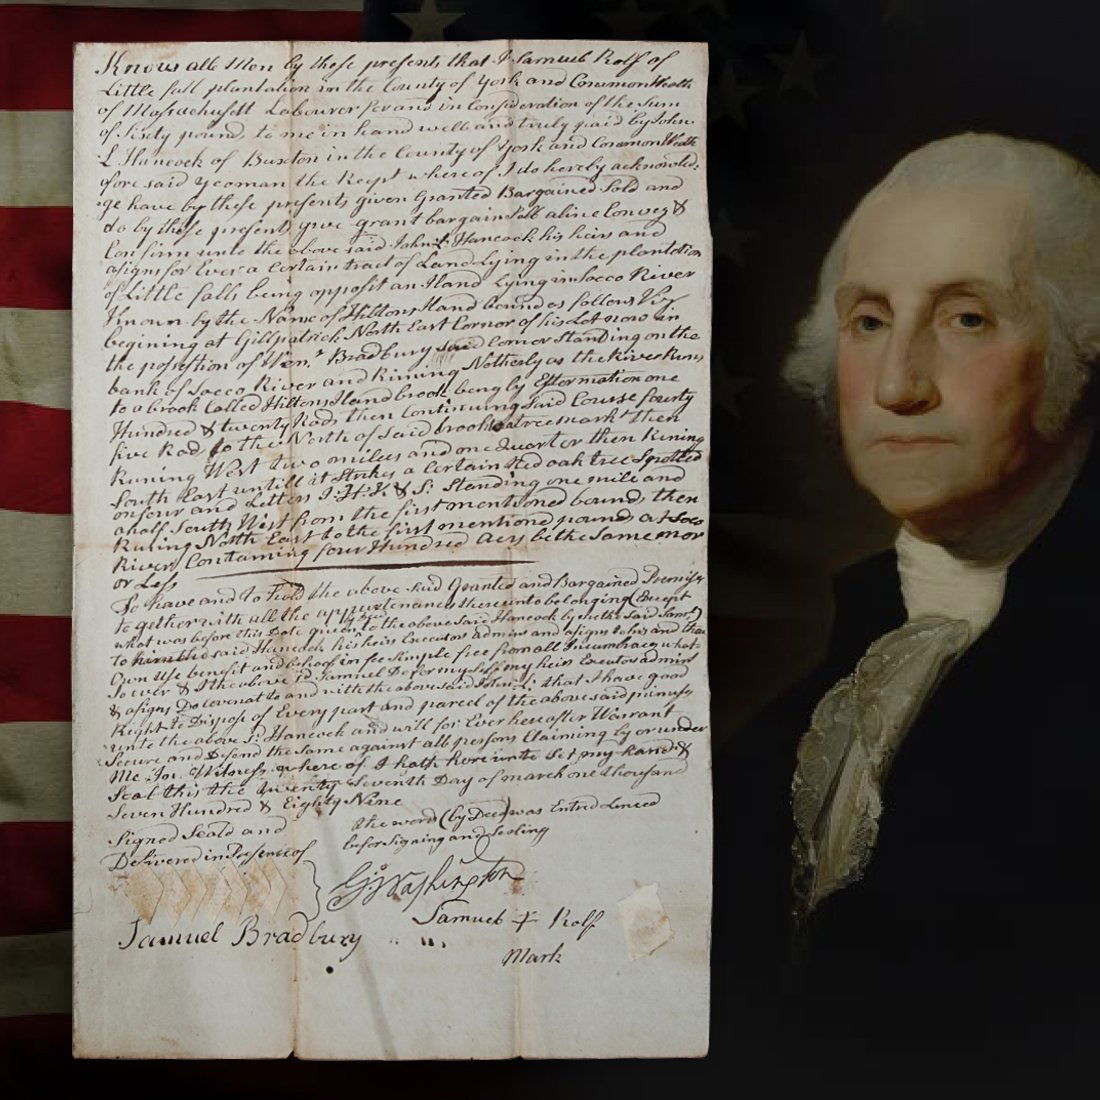 Know alle Men by these presents, that I Samueb Rolf of
Little fall plantation in the County of York and CommonWealth
of Massachusett Labourer for and in Consideration of the Sum
of Sixty pound to me in hand well and truly paid by John
L Hancock of Buxton in the County of York and CommonWealth
afore said yeoman the Rcept where of I do hereby acknowled-
ge have by these presents given Granted Bargained Sold and
do by these presents give grant bargain Sell aline Convey &
Confirm unto the above said John L Hancock his heirs and
asigns for Ever a Certain tract of Land Lying in the plantation
of Little falls being opposit an Iland Lying in Saco River
Known by the Name of Hiltons Iland bound as follows Viz
begining at Gillpatrick North East Cornor of his Lot now in
the posestion of Wm. Bradbury said Cornor Standing on the
bank of Saco River and Runing Notherly as the River Runs
to a brook Called Hiltons Iland brook being by Estermation one
Hundred & twenty Rods then Continuing Said Course fourty
five Rod to the North of Said brook to a tree markt then
Runing West two miles and one Quarter then Runing
South East untill it Strikes a Certain Red oak tree Spotted
on four and Letters I:H:Y: & S: Standing one mile and
a half South West from the first mentioned bound then
Runing North East to the first mentioned pounds at Saco
River Containing four Hundred Acers be the same mor
or Less
To have and to Hold the above said Granted and Bargained Premises
together with all the appurtenances there unto belonging (Except
what was before this Date given to the above said Hancock by me the said Saml)
to him the said Hancock his heirs Executors Admins and asigns to his and their
Own Use benefit and behoof in fee Simple free from all Incumbracs what-
soever & I the above sd Samuel Do for my self my heirs Executos admins
& asigns Do Covenat to and with the above said John L: that I have good
Right to Dispose of Every part and parcel of the above said primises
unto the above Sd Hancock and will for Ever here after Warrant
Secure and Defend the Same against all persons Claiming by or under
Me In Witness where of I hath here unto Set my hand &
Seal this the twenty Seventh Day of march one thousand
Seven Hundred & Eighty Nine
the word (by Deed) was Entred Lineed
befor Signing and Sealing
Signed Seald and
Delivered in Presence of
Go Washington
Samueb + Rolf
Mark
Samuel Bradbury